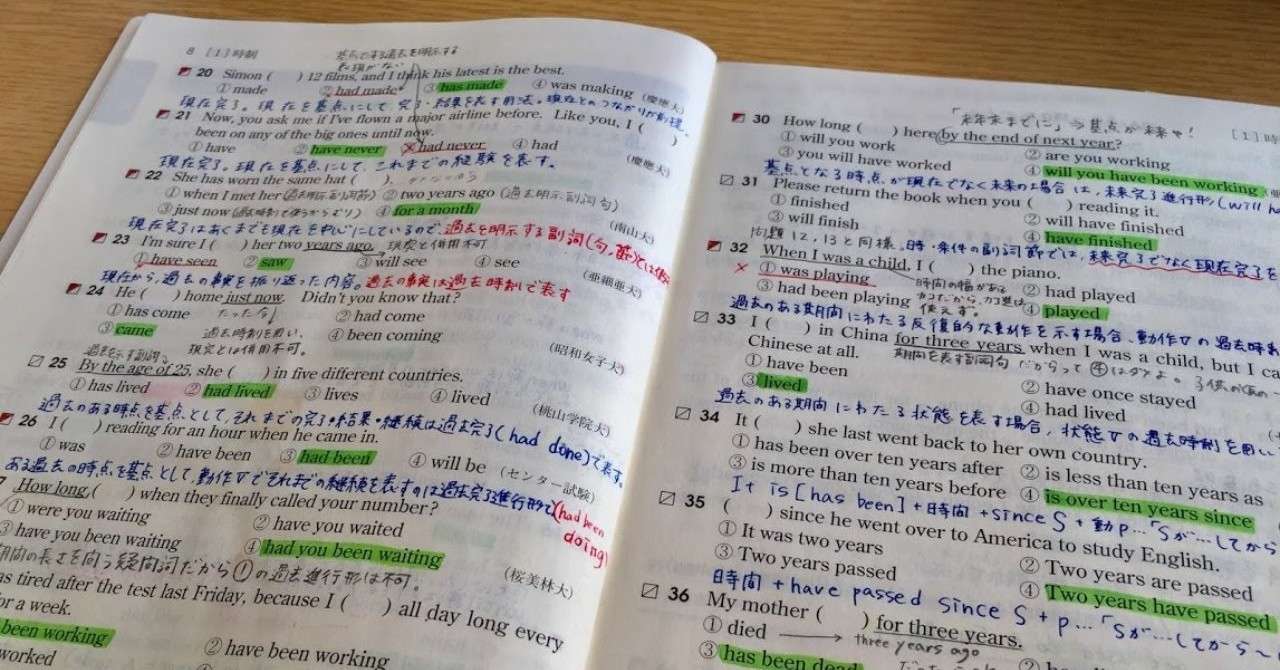 8 [1] 時制
基点とする過去を明示する
表現がない
20 Simon ( ) 12 films, and I think his latest is the best.
①made ②had made ③has made ④was making (慶應大)
現在完了。現在を基点にして完了・結果を表す用法。現在とのつながりが前提。
21 Now, you ask me if I've flown a major airline before. Like you, I ( )
been on any of the big ones until now.
①have ②have never ③had never ④had (慶應大)
現在完了。現在を基点にして、これまでの経験を表す。
22 She has worn the same hat ( ).
①when I met her (過去明示副詞節) ②two years ago (過去明示副詞句)
③just now (過去時制で使うからムリ) ④for a month (南山大)
現在完了はあくまでも現在を中心にしているので、過去を明示する副詞(句,節)とは
23 I'm sure I ( ) her two years ago. 現完と併用不可
①have seen ②saw ③will see ④see (亜細亜大)
現在から、過去の事実を振り返った内容。過去の事実は過去時制で表す
24 He ( ) home just now. Didn't you know that?
①has come たった今 ②had come
③came 過去時制を用い、 ④been coming
現完とは併用不可。 (昭和女子大)
過去を示す副詞
25 By the age of 25, she ( ) in five different countries.
①has lived ②had lived ③lives ④lived (桃山学院大)
過去のある時点を基点として、それまでの完了・結果・継続は過去完了(had done)で表す。
26 I ( ) reading for an hour when he came in.
①was ②have been ③had been ④will be (センター試験)
ある過去の時点を基点として、動作Vでそれまでの継続を表すのは過去完了進行形で(had been doing)
How long ( ) when they finally called your number?
①were you waiting ②have you waited
③have you been waiting ④had you been waiting (桜美林大)
期間の長さを問う疑問詞だから①の過去進行形は不可。
as tired after the test last Friday, because I ( ) all day long every
or a week.
been working ②have been working
worked
「来年末までに」→基点が未来!
[1] 時
30 How long ( ) here by the end of next year?
①will you work ②are you working
③you will have worked ④will you have been working
基点となる時点が現在でなく未来の場合は、未来完了進行形(will h
31 Please return the book when you ( ) reading it.
①finished ②will have finished
③will finish ④have finished
問題12,13と同様、時・条件の副詞節では、未来完了でなく現在完了を
32 When I was a child, I ( ) the piano.
①was playing 時間の幅がある ②had played
③had been playing カコだから、カコ進は使えず。 ④played
過去のある期間にわたる反復的な動作を示す場合、動作Vの過去時
33 I ( ) in China for three years when I was a child, but I ca
Chinese at all. 期間を表す副詞句だからって④はダメよ。
①have been ②have once stayed
③lived ④had lived
過去のある期間にわたる状態を表す場合、状態Vの過去時制を用い
34 It ( ) she last went back to her own country.
①has been over ten years after ②is less than ten years as
③is more than ten years before ④is over ten years since
It is [has been] + 時間 + since S + 動p…「Sが…してから
35 ( ) since he went over to America to study English.
①It was two years ②Two years are passed
③Two years passed ④Two years have passed
時間 + have passed since S + p…「Sが…してから〜
36 My mother ( ) for three years.
①died → three years ago ②ha
③has been dead